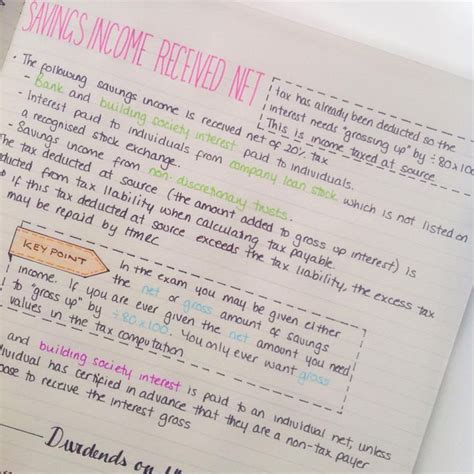 SAVINGS INCOME RECEIVED NET
tax has already been deducted so the
interest needs "grossing up" by ÷80x100
This is income taxed at source
• The following savings income is received net of 20% tax
- Bank and building society interest paid to individuals.
- Interest paid to individuals from company loan stock which is not listed on
a recognised stock exchange.
- Savings income from non-discretionary trusts.
The tax deducted at source (the amount added to gross up interest) is
ducted from tax liability when calculating tax payable.
• if this tax deducted at source exceeds the tax liability, the excess tax
may be repaid by hmrc
KEY POINT
In the exam you may be given either
the net or gross amount of savings
income. If you are ever given the net amount you need
to "gross up" by ÷80x100. You only ever want gross
values in the tax computation
and building society interest is paid to an individual net, unless
dividual has certified in advance that they are a non-tax payer
pose to receive the interest gross
Dividends on